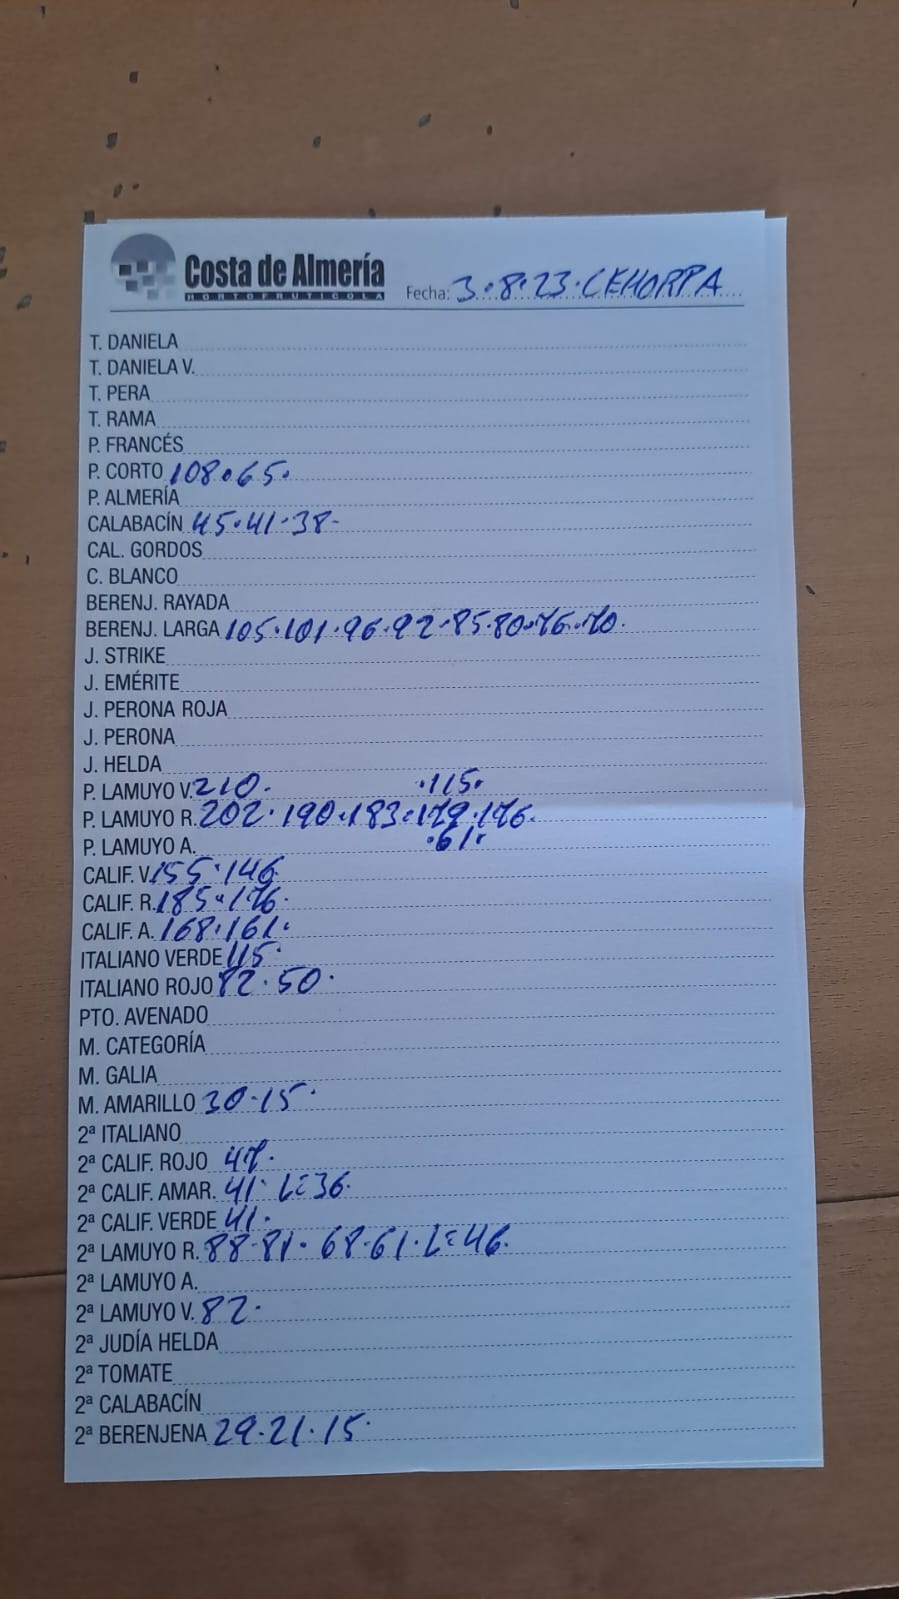 Costa de Almería
HORTOFRUTÍCOLA
Fecha: 3.8.23.CEHORPA
T. DANIELA
T. DANIELA V.
T. PERA
T. RAMA
P. FRANCÉS
P. CORTO 108.65.
P. ALMERÍA
CALABACÍN 45.41.38-
CAL. GORDOS
C. BLANCO
BERENJ. RAYADA
BERENJ. LARGA 105.101.96.92.85.80.76.70.
J. STRIKE
J. EMÉRITE
J. PERONA ROJA
J. PERONA
J. HELDA
P. LAMUYO V. 210. .115.
P. LAMUYO R. 202.190.183.179.176.
P. LAMUYO A. .61.
CALIF. V. 155.146.
CALIF. R. 185.176.
CALIF. A. 168.161.
ITALIANO VERDE 115.
ITALIANO ROJO 82.50.
PTO. AVENADO
M. CATEGORÍA
M. GALIA
M. AMARILLO 30.15.
2ª ITALIANO
2ª CALIF. ROJO 47.
2ª CALIF. AMAR. 41. L=36.
2ª CALIF. VERDE 41.
2ª LAMUYO R. 88.81. 68.61.L=46.
2ª LAMUYO A.
2ª LAMUYO V. 82.
2ª JUDÍA HELDA
2ª TOMATE
2ª CALABACÍN
2ª BERENJENA 29.21.15.